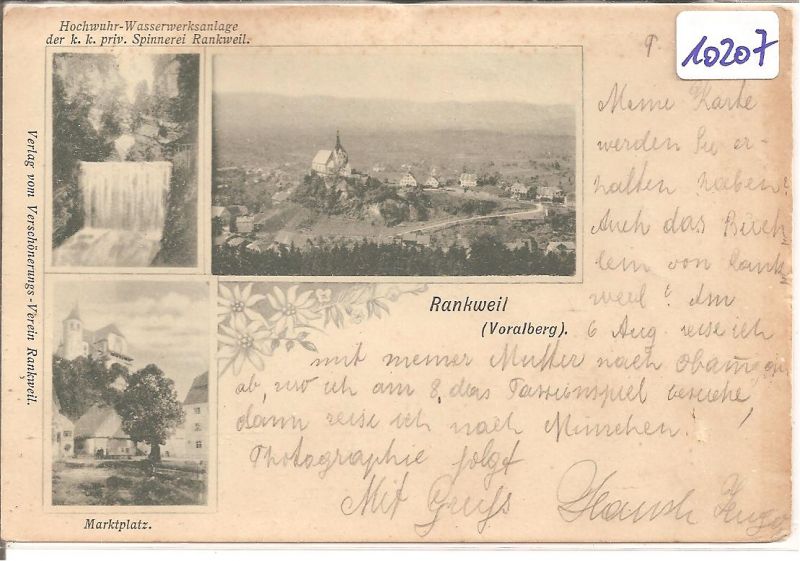 Hochwuhr-Wasserwerksanlage
der k. k. priv. Spinnerei Rankweil.
10207
Verlag vom Verschönerungs-Verein Rankweil.
Rankweil
(Voralberg).
Marktplatz.
P.
Meine Karte
werden Sie er-
halten haben?
Auch das Büch-
lein von Rank-
weil? Am
6 Aug. reise ich
mit meiner Mutter nach
ab, wo ich am 8. das Passionspiel besuche,
dann reise ich nach München.
Photographie folgt
Mit Gruß Hugo